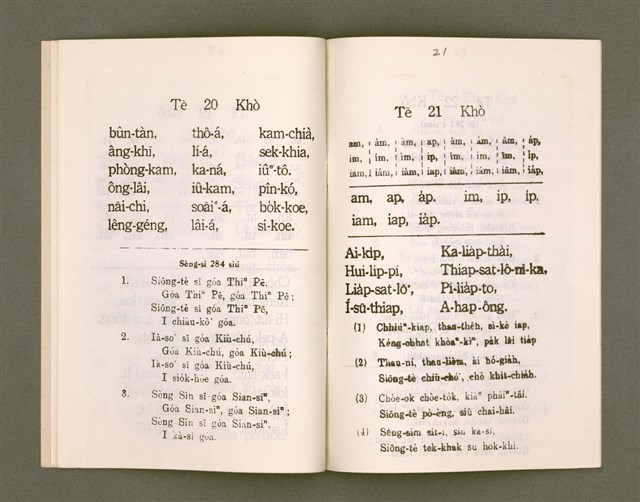 Tē 20 Khò
bûn-tàn, thô-á, kam-chià,
âng-khi, lí-á, sek-khia,
phòng-kam, ka-ná, iûⁿ-tô.
ông-lâi, iû-kam, pîn-kó,
nāi-chi, soāiⁿ-á, bo̍k-koe,
lêng-géng, lâi-á, si-koe.
Sèng-si 284 siú
1. Siōng-tè sī góa Thiⁿ Pē.
Góa Thiⁿ Pē, góa Thiⁿ Pē;
Siōng-tè sī góa Thiⁿ Pē,
I chiàu-kò͘ góa.
2. Iâ-so͘ sī góa Kiù-chú,
Góa Kiù-chú, góa Kiù-chú;
Iâ-so͘ sī góa Kiù-chú,
I sio̍k-hôe góa.
3. Sèng Sîn sī góa Sian-siⁿ,
Góa Sian-siⁿ, góa Sian-siⁿ;
Sèng Sîn sī góa Sian-siⁿ.
I kà-sī góa.
21
Tē 21 Khò
am, ám, àm, ap, âm, ám, ām, a̍p,
im, ím, ìm, ip, îm, ím, īm, i̍p,
iam, iám, iàm, iap, iâm, iám, iām, ia̍p,
am, ap, a̍p. im, ip, i̍p.
iam, iap, ia̍p.
Ai-ki̍p, Ka-lia̍p-thài,
Hui-li̍p-pí, Thiap-sat-lô-nî-ka,
Lia̍p-sat-lō͘, Pí-lia̍p-to,
Í-sū-thiap, A-hap-ông.
(1) Chhiúⁿ-kiap, thau-the̍h, sì-kè iap,
Kéng-chhat khòaⁿ-kìⁿ, pa̍k lâi tia̍p
(2) Thau-ni, thau-liêm, ài hó-gia̍h,
Siōng-tè chiù-chó͘, chò khit-chia̍h.
(3) Chòe-ok chòe-to̍k, kiâⁿ pháiⁿ-tāi.
Siōng-tè pò-èng, siū chai-hāi.
(4) Sêng-sim si̍t-ì, siú ka-sí,
Siōng-tè tek-khak sù hok-khì.